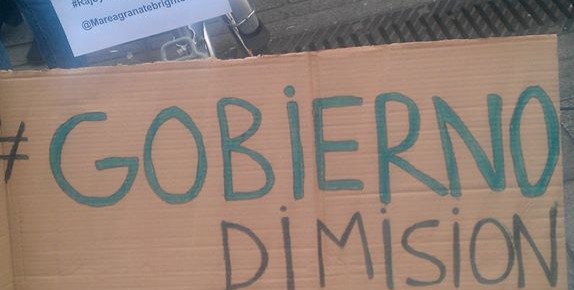 @Mareagranatebrighto
# GOBiERNO
DiMiSiON